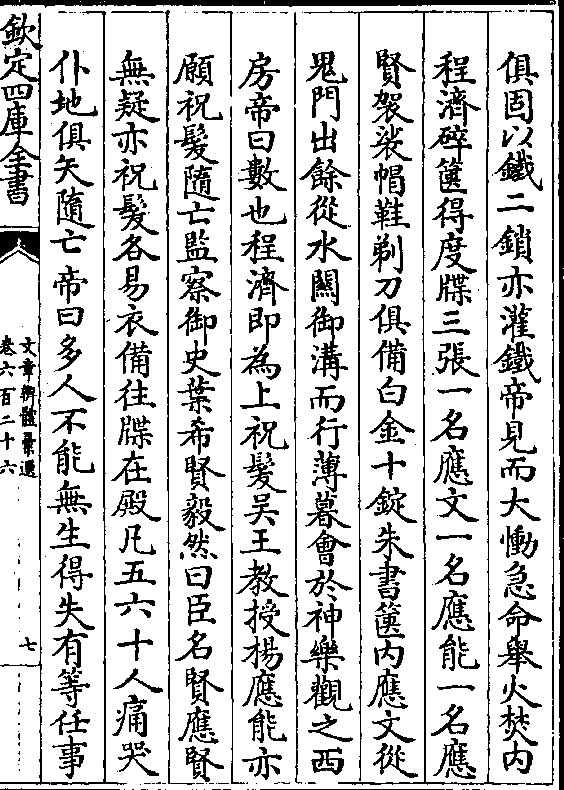 俱固以鐵二鎖亦灌鐵帝見而大慟急命舉火焚内
程濟碎篋得度牒三張一名應文一名應能一名應
賢袈裟帽鞋剃刀俱備白金十錠朱書篋内應文從
鬼門出餘從水關御溝而行薄暮會於神樂觀之西
房帝曰數也程濟即為上祝髮吴王教授楊應能亦
願祝髮隨亡監察御史葉希賢毅然曰臣名賢應賢
無疑亦祝髮各易衣備往牒在殿凡五六十人痛哭
仆地俱矢隨亡帝曰多人不能無生得失有等任事
欽定四庫全書
文章辨體彙選
卷六百二十六
七